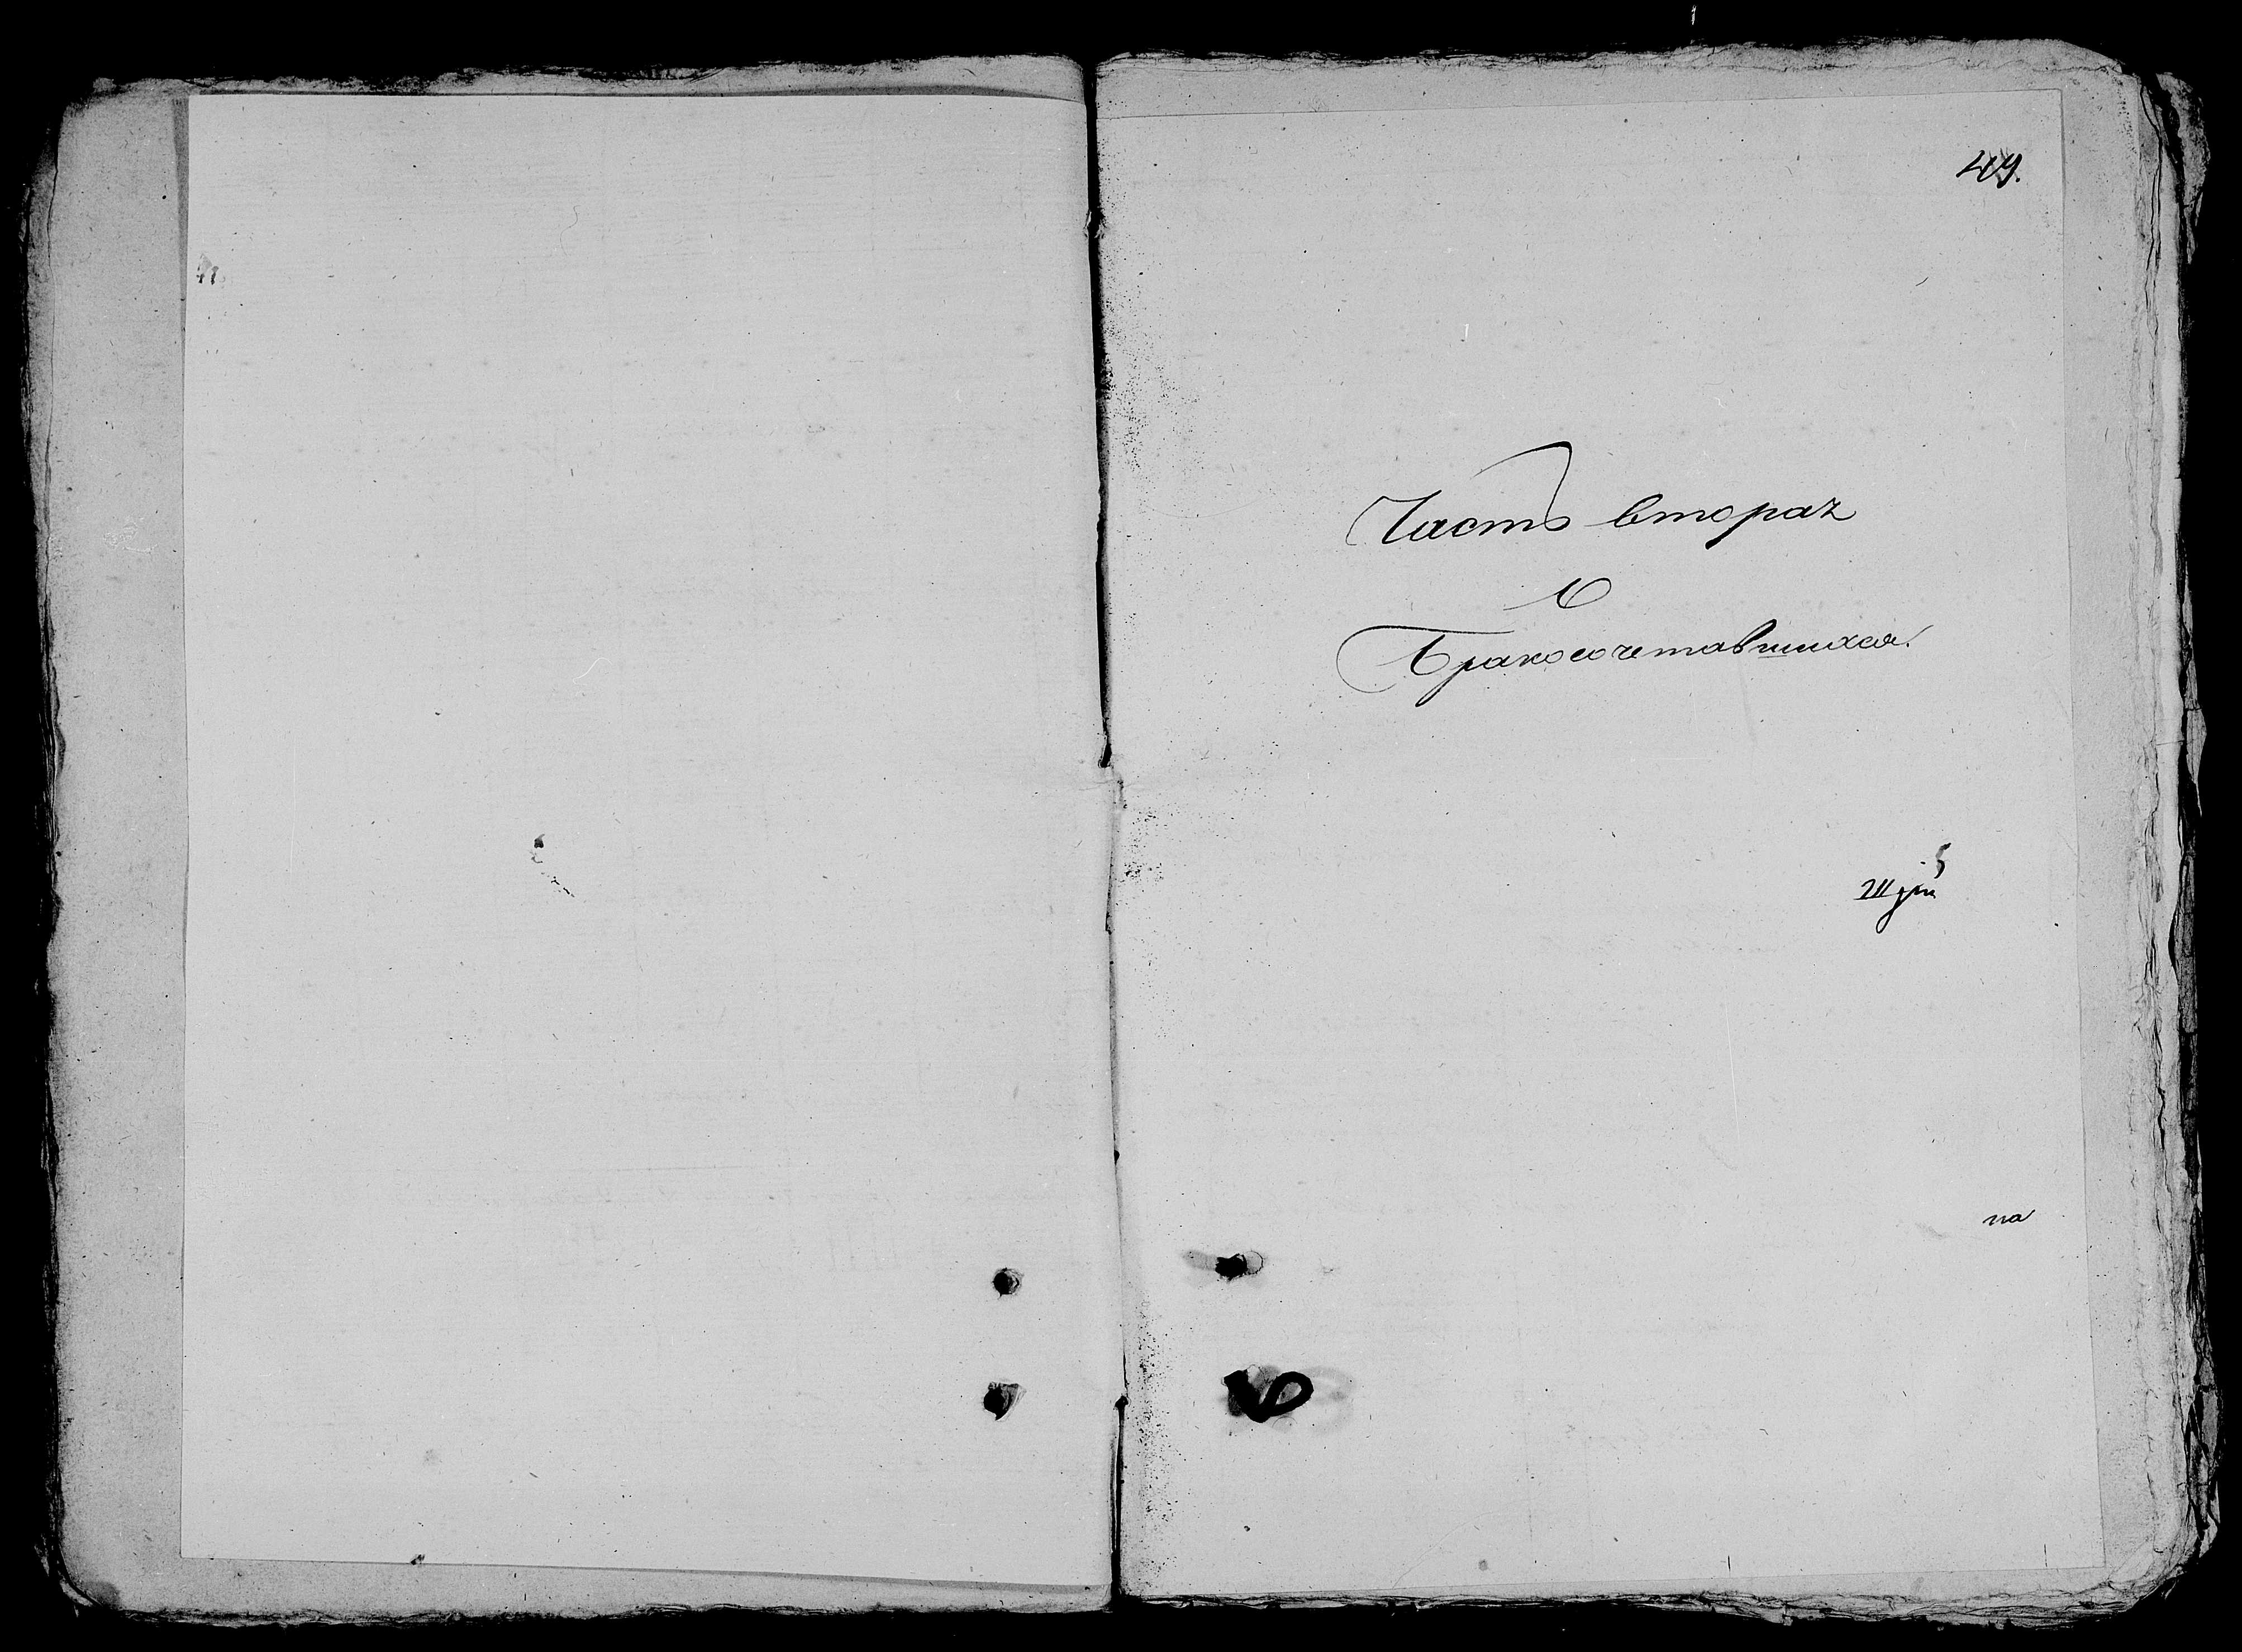 49.
Часть вторая
О
Бракосочетавшихся.
на